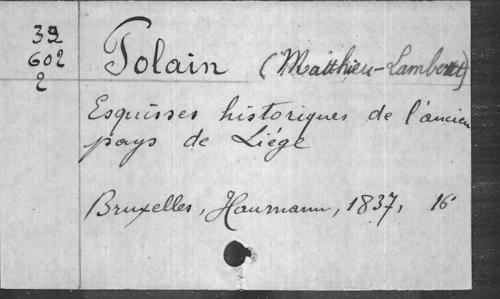 39
602
2
Polain (Matthieu-Lambert)
Esquisses historiques de l'ancien
pays de Liége
Bruxelles, Haumann, 1837, 16°